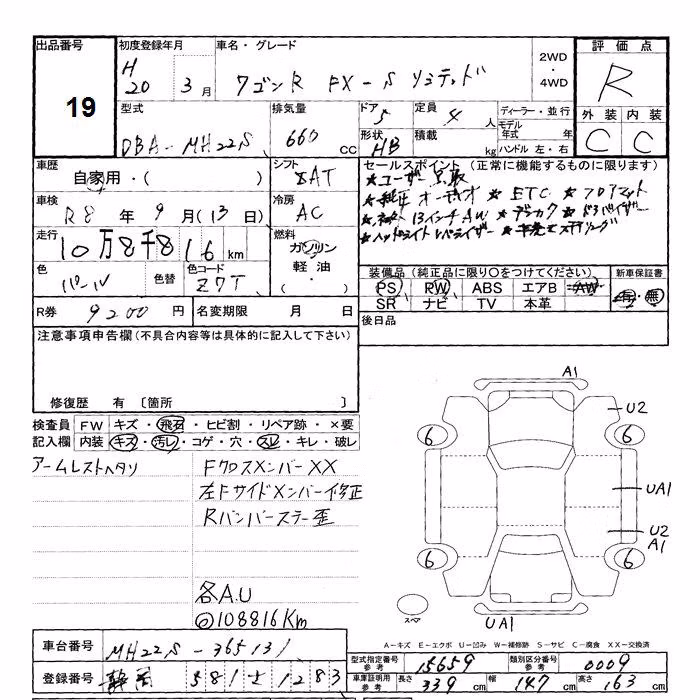 出品番号 初度登録年月 車名・グレード 評価点
19
H20 3月 ワゴンR FX-S リミテッド 2WD・4WD R
型式 排気量 ドア 定員 ディーラー・並行 外装 内装
DBA-MH22S 660cc 5 4人 モデル年式 年 C C
形状 HB 積載 kg ハンドル 左・右
車歴 シフト セールスポイント (正常に機能するものに限ります)
自家用・( ) SAT
★ユーザー買取
★純正オーディオ ★ETC ★フロアマット
車検 冷房
R8年9月(13日) AC
13インチAW
★ヘッドライトレベライザー
走行 燃料
10万8千816km ガソリン
軽油・( )
色 色替 色コード
パール Z7T
装備品 (純正品に限り〇をつけてください) 新車保証書
PS RW ABS エアB AW 有・無
SR ナビ TV 本革
R券 9200円 名変期限 月 日 後日品
注意事項申告欄(不具合内容等は具体的に記入して下さい)
修復歴 有 〔箇所 〕
検査員 FW キズ・飛石・ヒビ割・リペア跡・×要
記入欄 内装 キズ・汚レ・コゲ・穴・スレ・キレ・破レ
アームレストヘタリ FクロスメンバーXX
左Fサイドメンバー修正
Rバンパーステー歪
各A.U
◎108816Km
A1
U2
6 6
UA1
U2
A1
6 6
スペア
UA1
A-キズ E-エクボ U-凹み W-補修跡 S-サビ C-腐食 XX-交換済
車台番号 MH22S-365131
登録番号 静岡 581 1283
型式指定番号 参考 15659 類別区分番号 参考 0009
車庫証明用 参考 長さ 339cm 幅 147cm 高さ 163cm